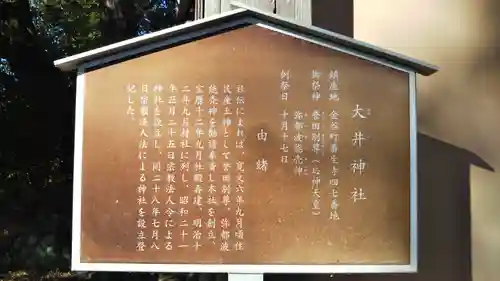 大井神社
鎮座地 金谷町番生寺四七番地
御祭神 誉田別尊(応神天皇)
弥都波能売神
例祭日 十月十七日
由緒
社伝によれば、寛文六年九月頃住
民産土神として誉田別尊、弥都波
能売神を勧請奉斎し本社を創立、
宝暦十二年九月社殿再建、明治十
二年九月村社に列し、昭和二十一
年三月二十五日宗教法人令による
神社を設立し、同二十八年七月八
日宗教法人法による神社を設立登
記した。